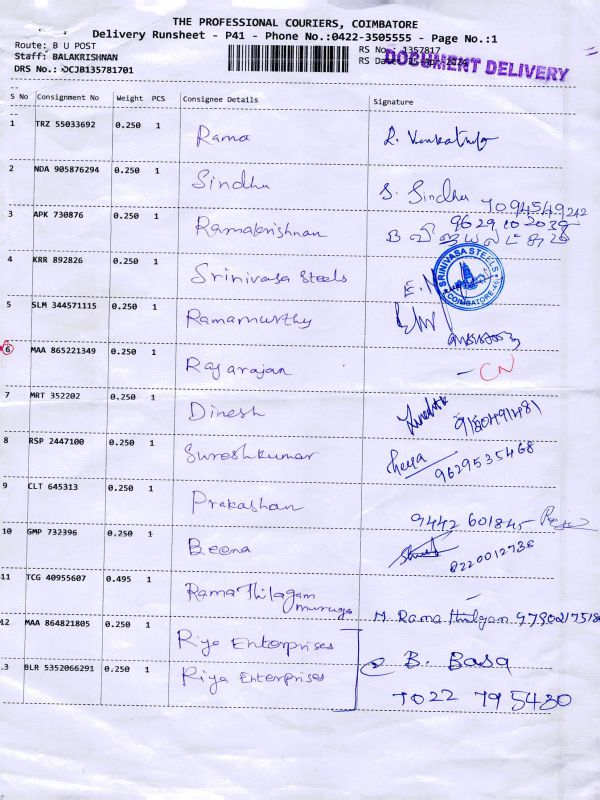 THE PROFESSIONAL COURIERS, COIMBATORE
Delivery Runsheet - P41 - Phone No.:0422-3505555 - Page No.:1
Route: B U POST
Staff: BALAKRISHNAN
DRS No.: DCJB135781701
RS No.: 1357817
RS Date:
DOCUMENT DELIVERY
S No Consignment No Weight PCS Consignee Details Signature
1 TRZ 55033692 0.250 1 Rama
2 NDA 905876294 0.250 1 Sindhu S. Sindhu
3 APK 730876 0.250 1 Ramakrishnan 9629102039
4 KRR 892826 0.250 1 Srinivasa Steels E.N
SRINIVASA STEELS
COIMBATORE
5 SLM 344571115 0.250 1 Ramamurthy
6 MAA 865221349 0.250 1 Rajarajan - CN
7 MRT 352202 0.250 1 Dinesh
8 RSP 2447100 0.250 1 Sureshkumar 9629535468
9 CLT 645313 0.250 1 Prakashan 9442 601845
10 GMP 732396 0.250 1 Beena 8220012736
11 TCG 40955607 0.495 1 Rama Thilagam
muruga
M. Rama thilgam
12 MAA 864821805 0.250 1 Riya Enterprises B. Basa
13 BLR 5352066291 0.250 1 Riya Enterprises 7022 795480